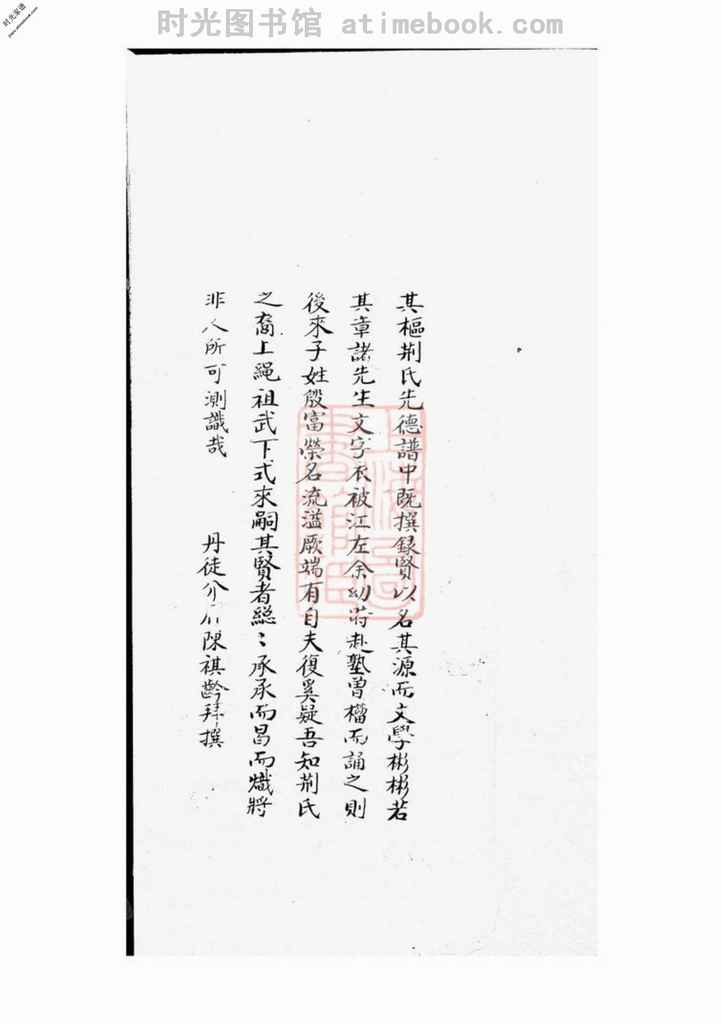 时光图书馆 atimebook.com
时光家谱
www.atimebook.com
其樞荆氏先德譜中既撰録賢以名其源而文學彬彬若
其章諸先生文字衣被江左余幼時赴塾曽櫂而誦之則
後來子姓殷富榮名流溢厥端有自夫復奚疑吾知荆氏
之裔上繩祖武下式來嗣其賢者緜〻承承而昌而熾將
非人所可測識哉
丹徒介石陳祺齡拜撰